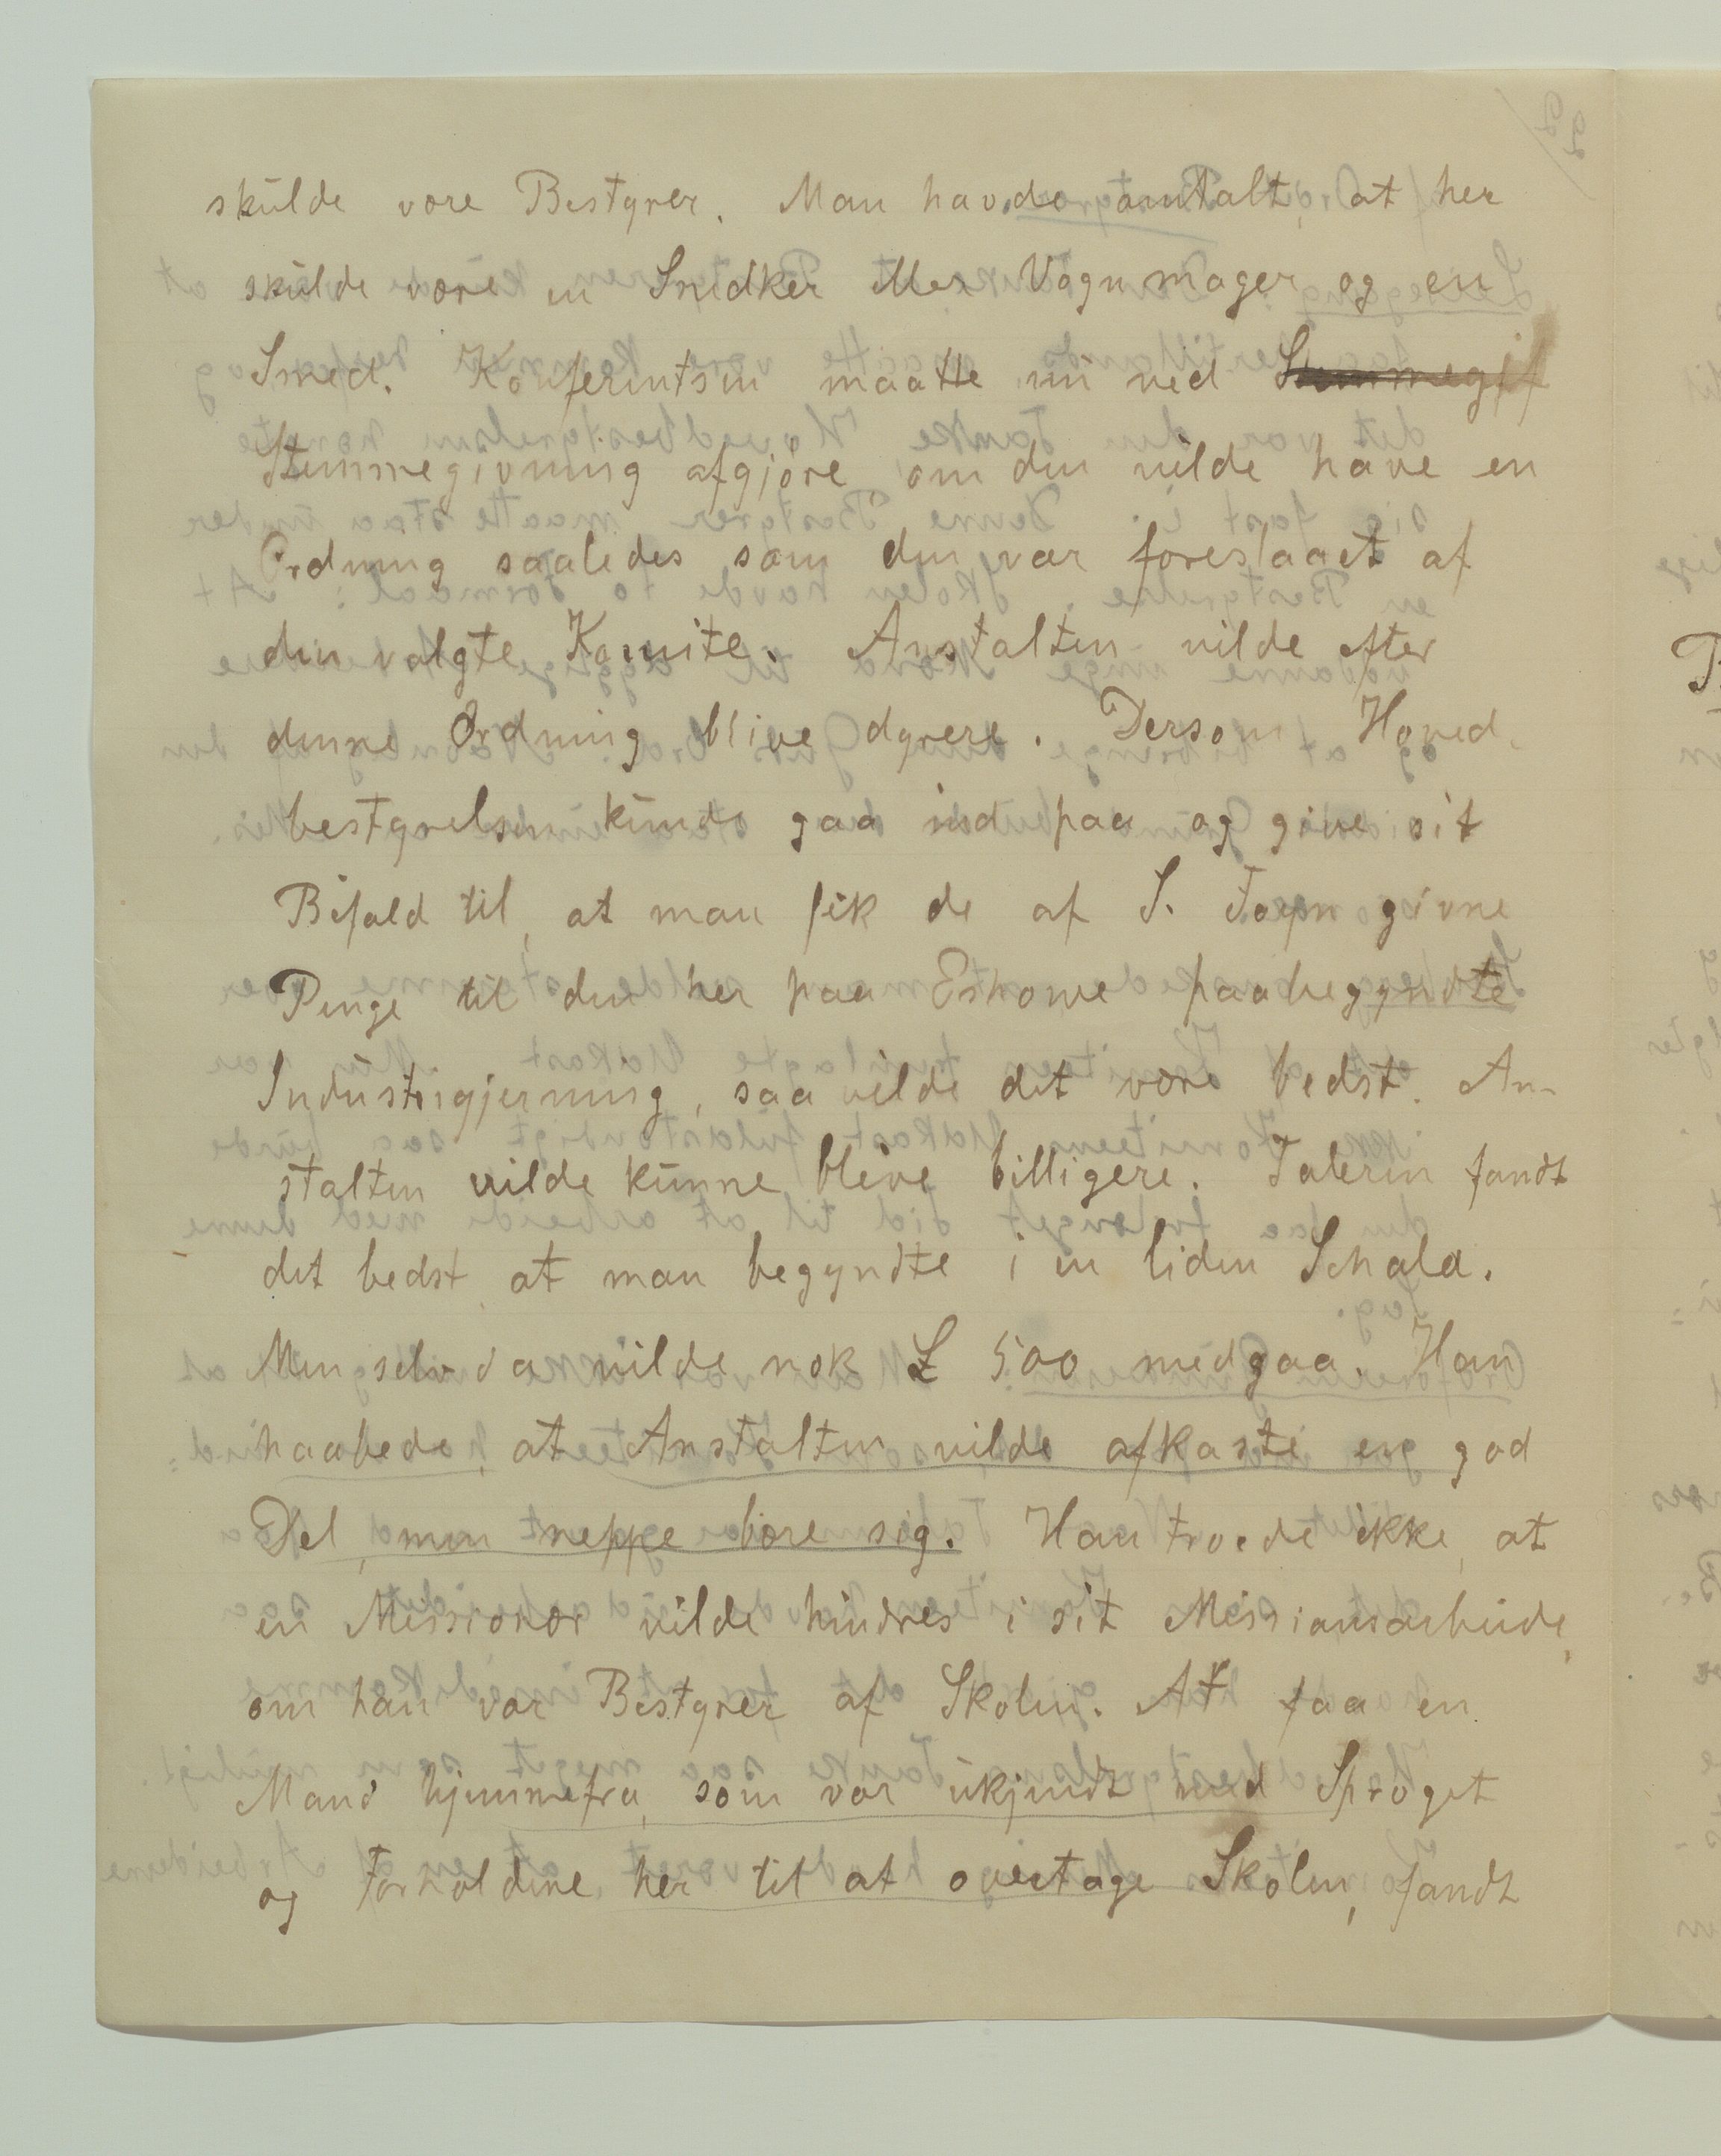 skulde være Bestyrer. Man havde omtalt, at her
skulde være en Snedker eller Vognmager og en
Smed. Konferentsen maatte nu ved Stemmegif
Stemmegivning afgjöre, om den vilde have en
Ordning saaledes som den var foreslaaet af
den valgte Komite. Anstalten vilde efter
denne Ordning blive dyrere. Dersom Hoved-
bestyrelsen kunde gaa ind paa og give sit
Bifald til, at man fik de af S. Foyn givne
Penge til den her paa Eshowe paabegyndte
Industrigjerning, saa vilde det være bedst. An-
stalten vilde kunne blive billigere. Taleren fandt
det bedst, at man begyndte i en liden Schala.
Men selv da vilde nok £ 500 medgaa. Han
haabede, at Anstalten vilde afkaste en god
Del, men neppe bære sig. Han troede ikke, at
en Missionær vilde hindres i sit Missionsarbeide,
om han var Bestyrer af Skolen. At faa en
Mand hjemmefra, som var ukjendt med Sproget
og Forholdene her til at overtage Skolen, fandt